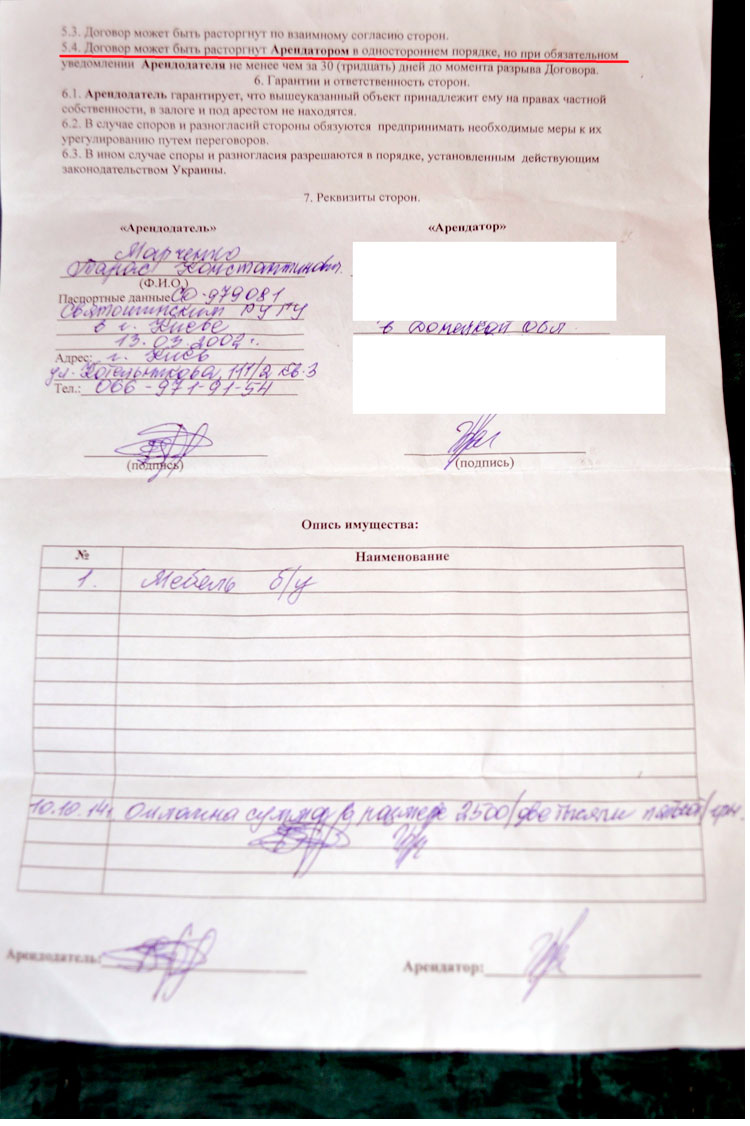 5.3. Договор может быть расторгнут по взаимному согласию сторон.
5.4. Договор может быть расторгнут Арендатором в одностороннем порядке, но при обязательном
уведомлении Арендодателя не менее чем за 30 (тридцать) дней до момента разрыва Договора.
6. Гарантии и ответственность сторон.
6.1. Арендодатель гарантирует, что вышеуказанный объект принадлежит ему на правах частной
собственности, в залоге и под арестом не находятся.
6.2. В случае споров и разногласий стороны обязуются предпринимать необходимые меры к их
урегулированию путем переговоров.
6.3. В ином случае споры и разногласия разрешаются в порядке, установленным действующим
законодательством Украины.
7. Реквизиты сторон.
«Арендодатель» «Арендатор»
Марченко
Тарас Константинович
(Ф.И.О.)
Паспортные данные СО-979081
Святошинским РУГУ
в г. Киеве в Донецкой обл.
13.03.2002г.
Адрес: г. Киев
ул. Котельникова, 111/2 кв.3
Тел.: 066-971-91-54
(подпись) (подпись)
Опись имущества:
№ Наименование
1. Мебель б/у
10.10.14г. Оплачена сумма в размере 2500/две тысячи пятьсот/грн.
Арендодатель: Арендатор: